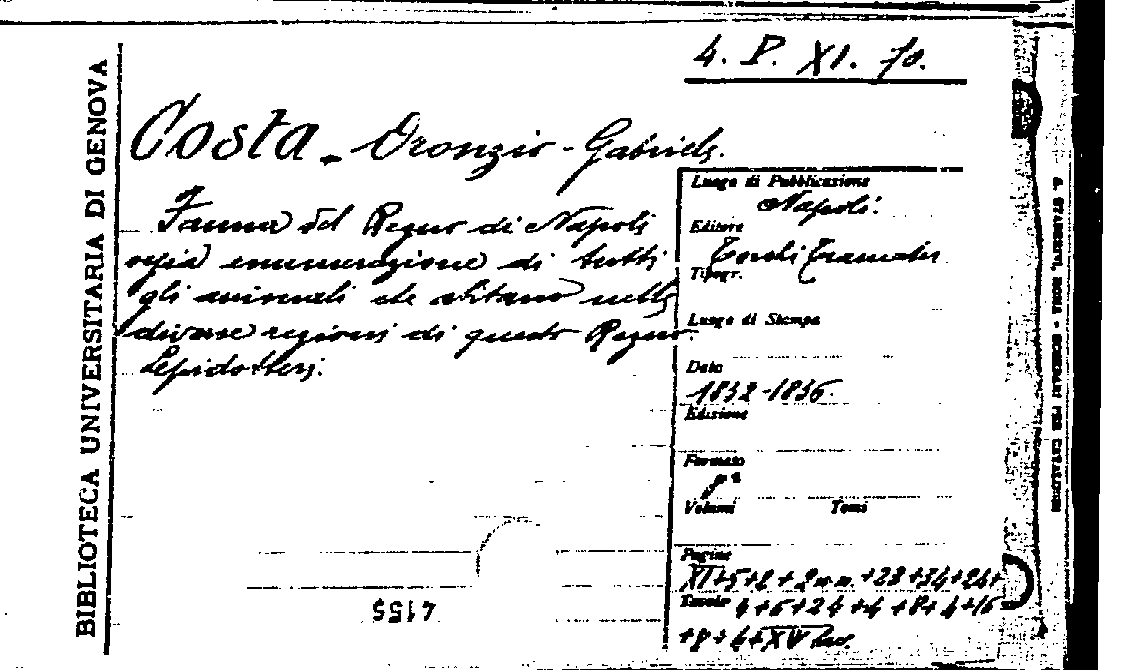 4. P. XI. 70.
BIBLIOTECA UNIVERSITARIA DI GENOVA
Costa - Oronzio - Gabriele.
Fauna del Regno di Napoli
ossia enumerazione di tutti
gli animali che abitano nelle
diverse regioni di questo Regno.
Lepidotteri.
Luogo di Pubblicazione
Napoli.
Editore
Tipogr.
Luogo di Stampa
Data
1832-1836.
Edizione
Formato
Volumi Tomi
Pagine
XI+5+2+2 nn.+28+34+24+
Tavole 4+6+24+4+8+4+16
4155